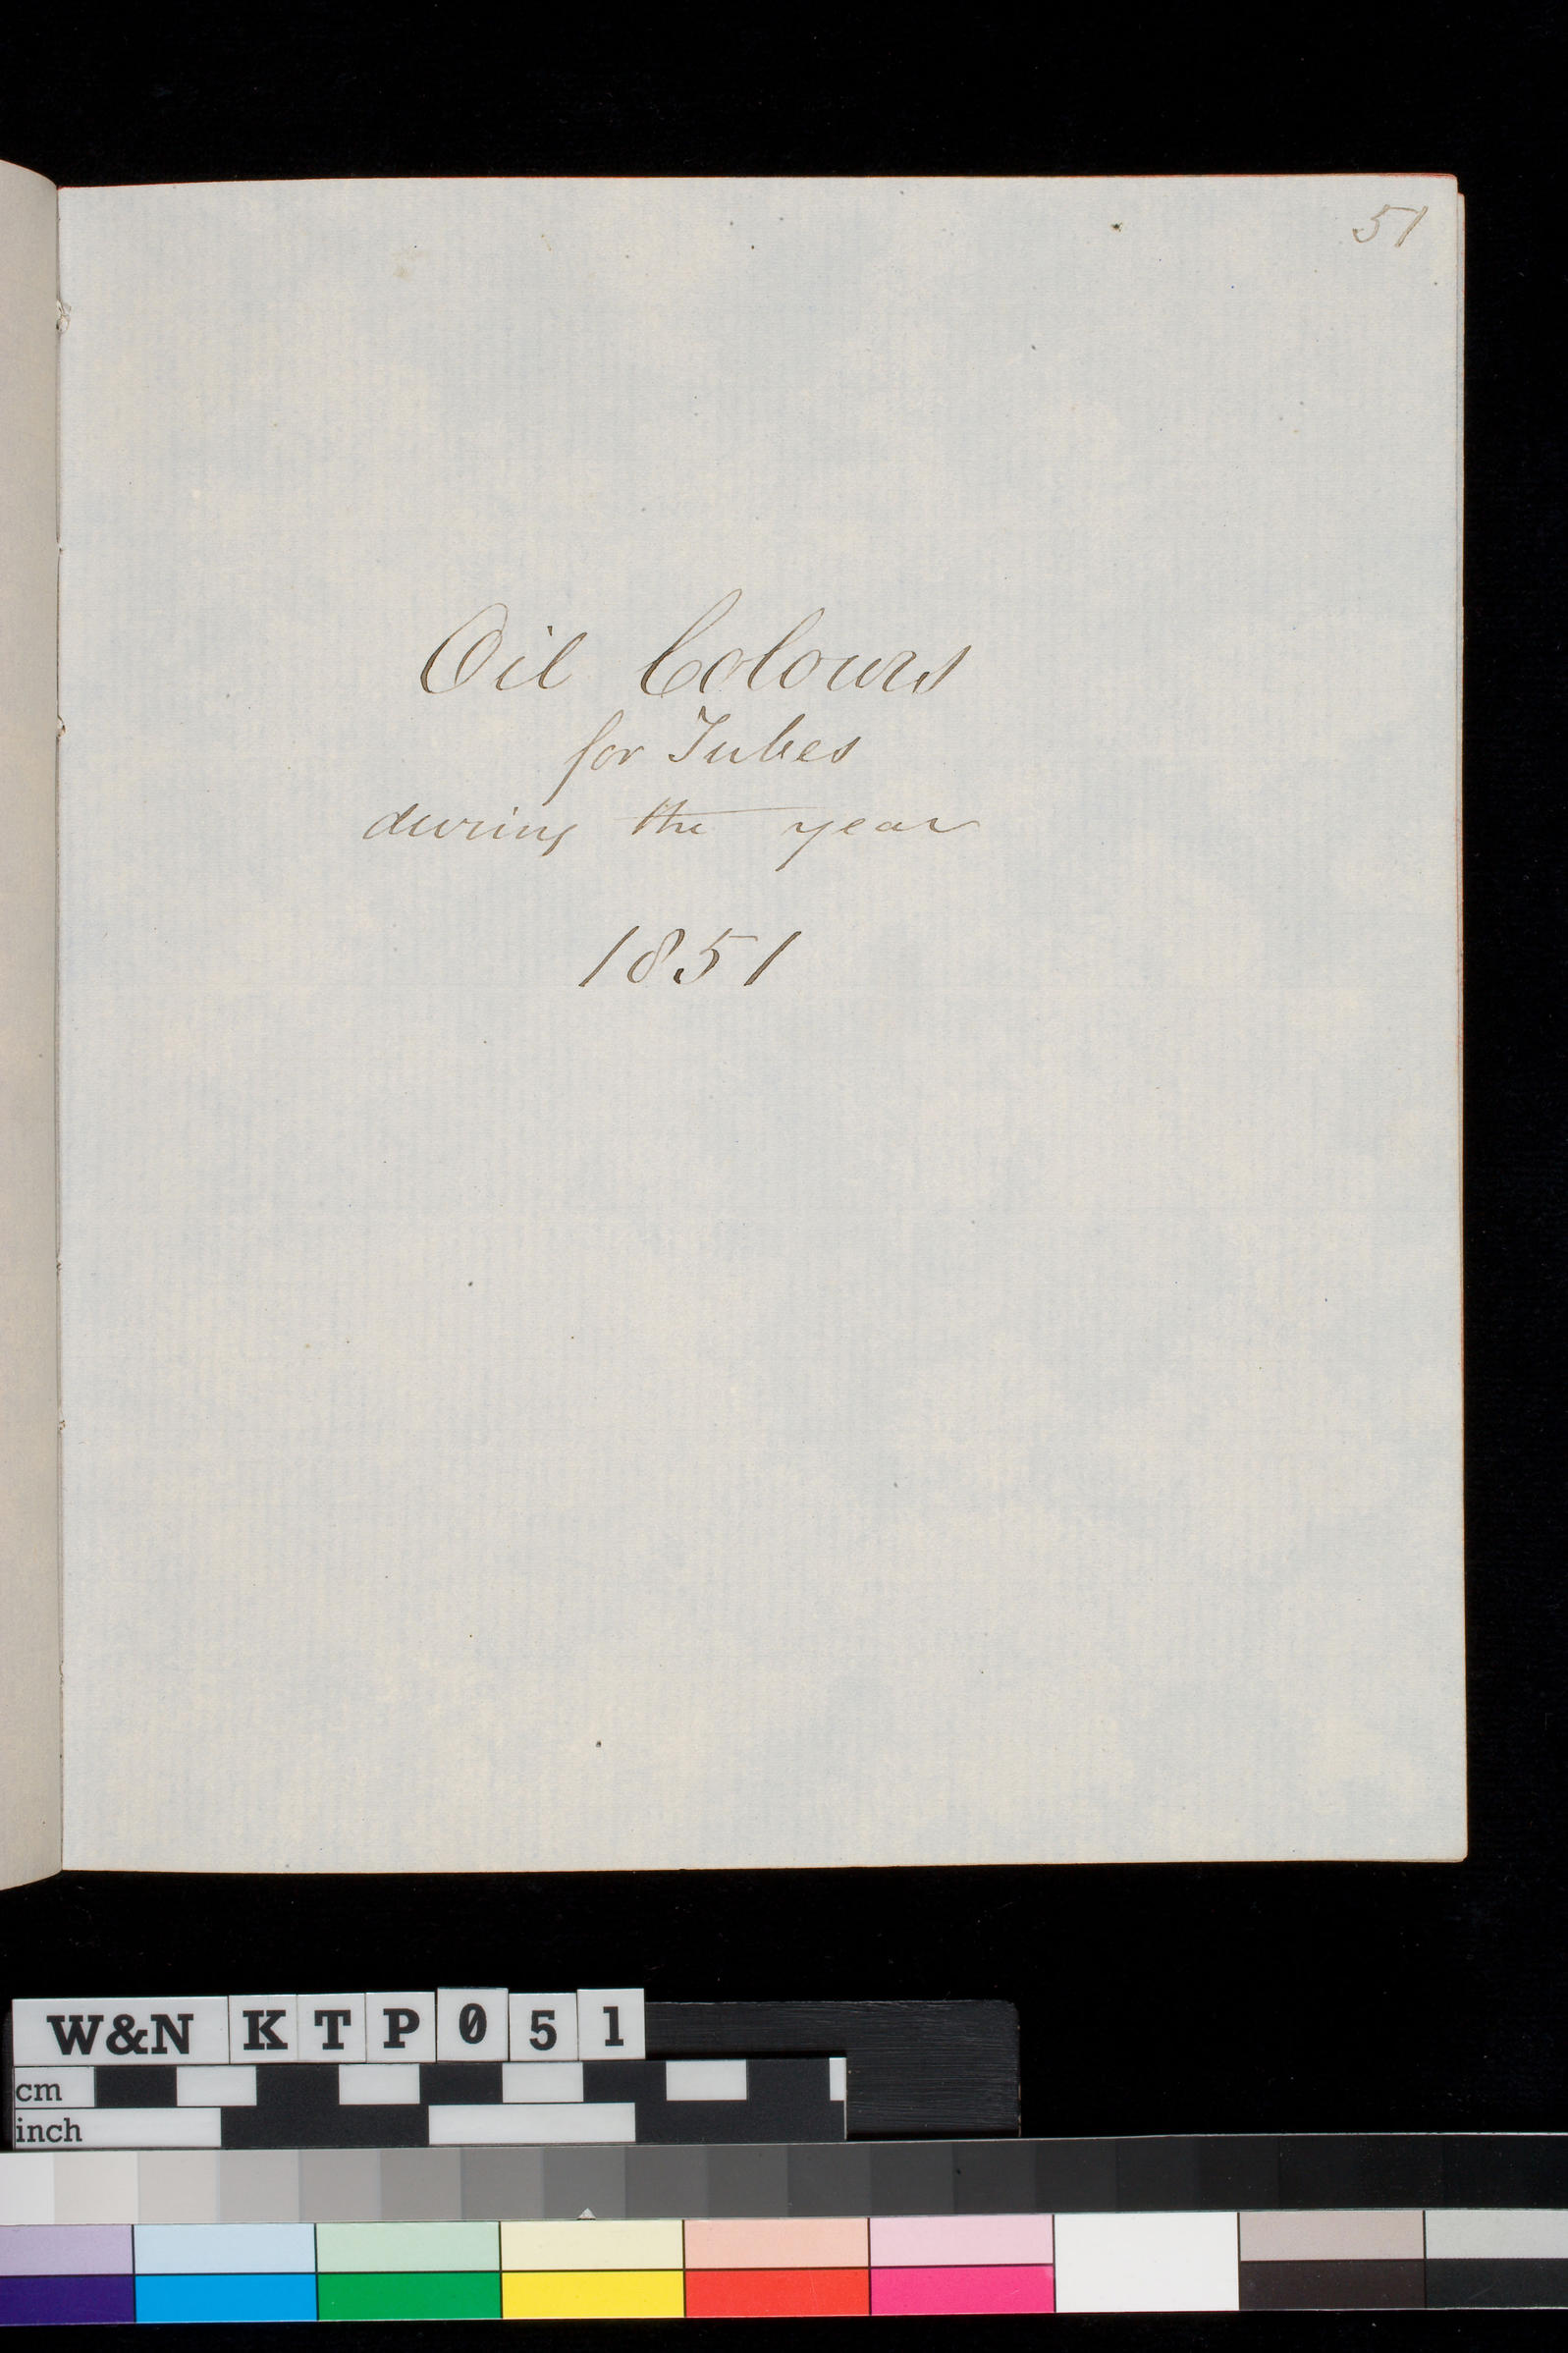 51
Oil Colours
for Tubes
during the year
1851
W&N KTP051
cm
inch